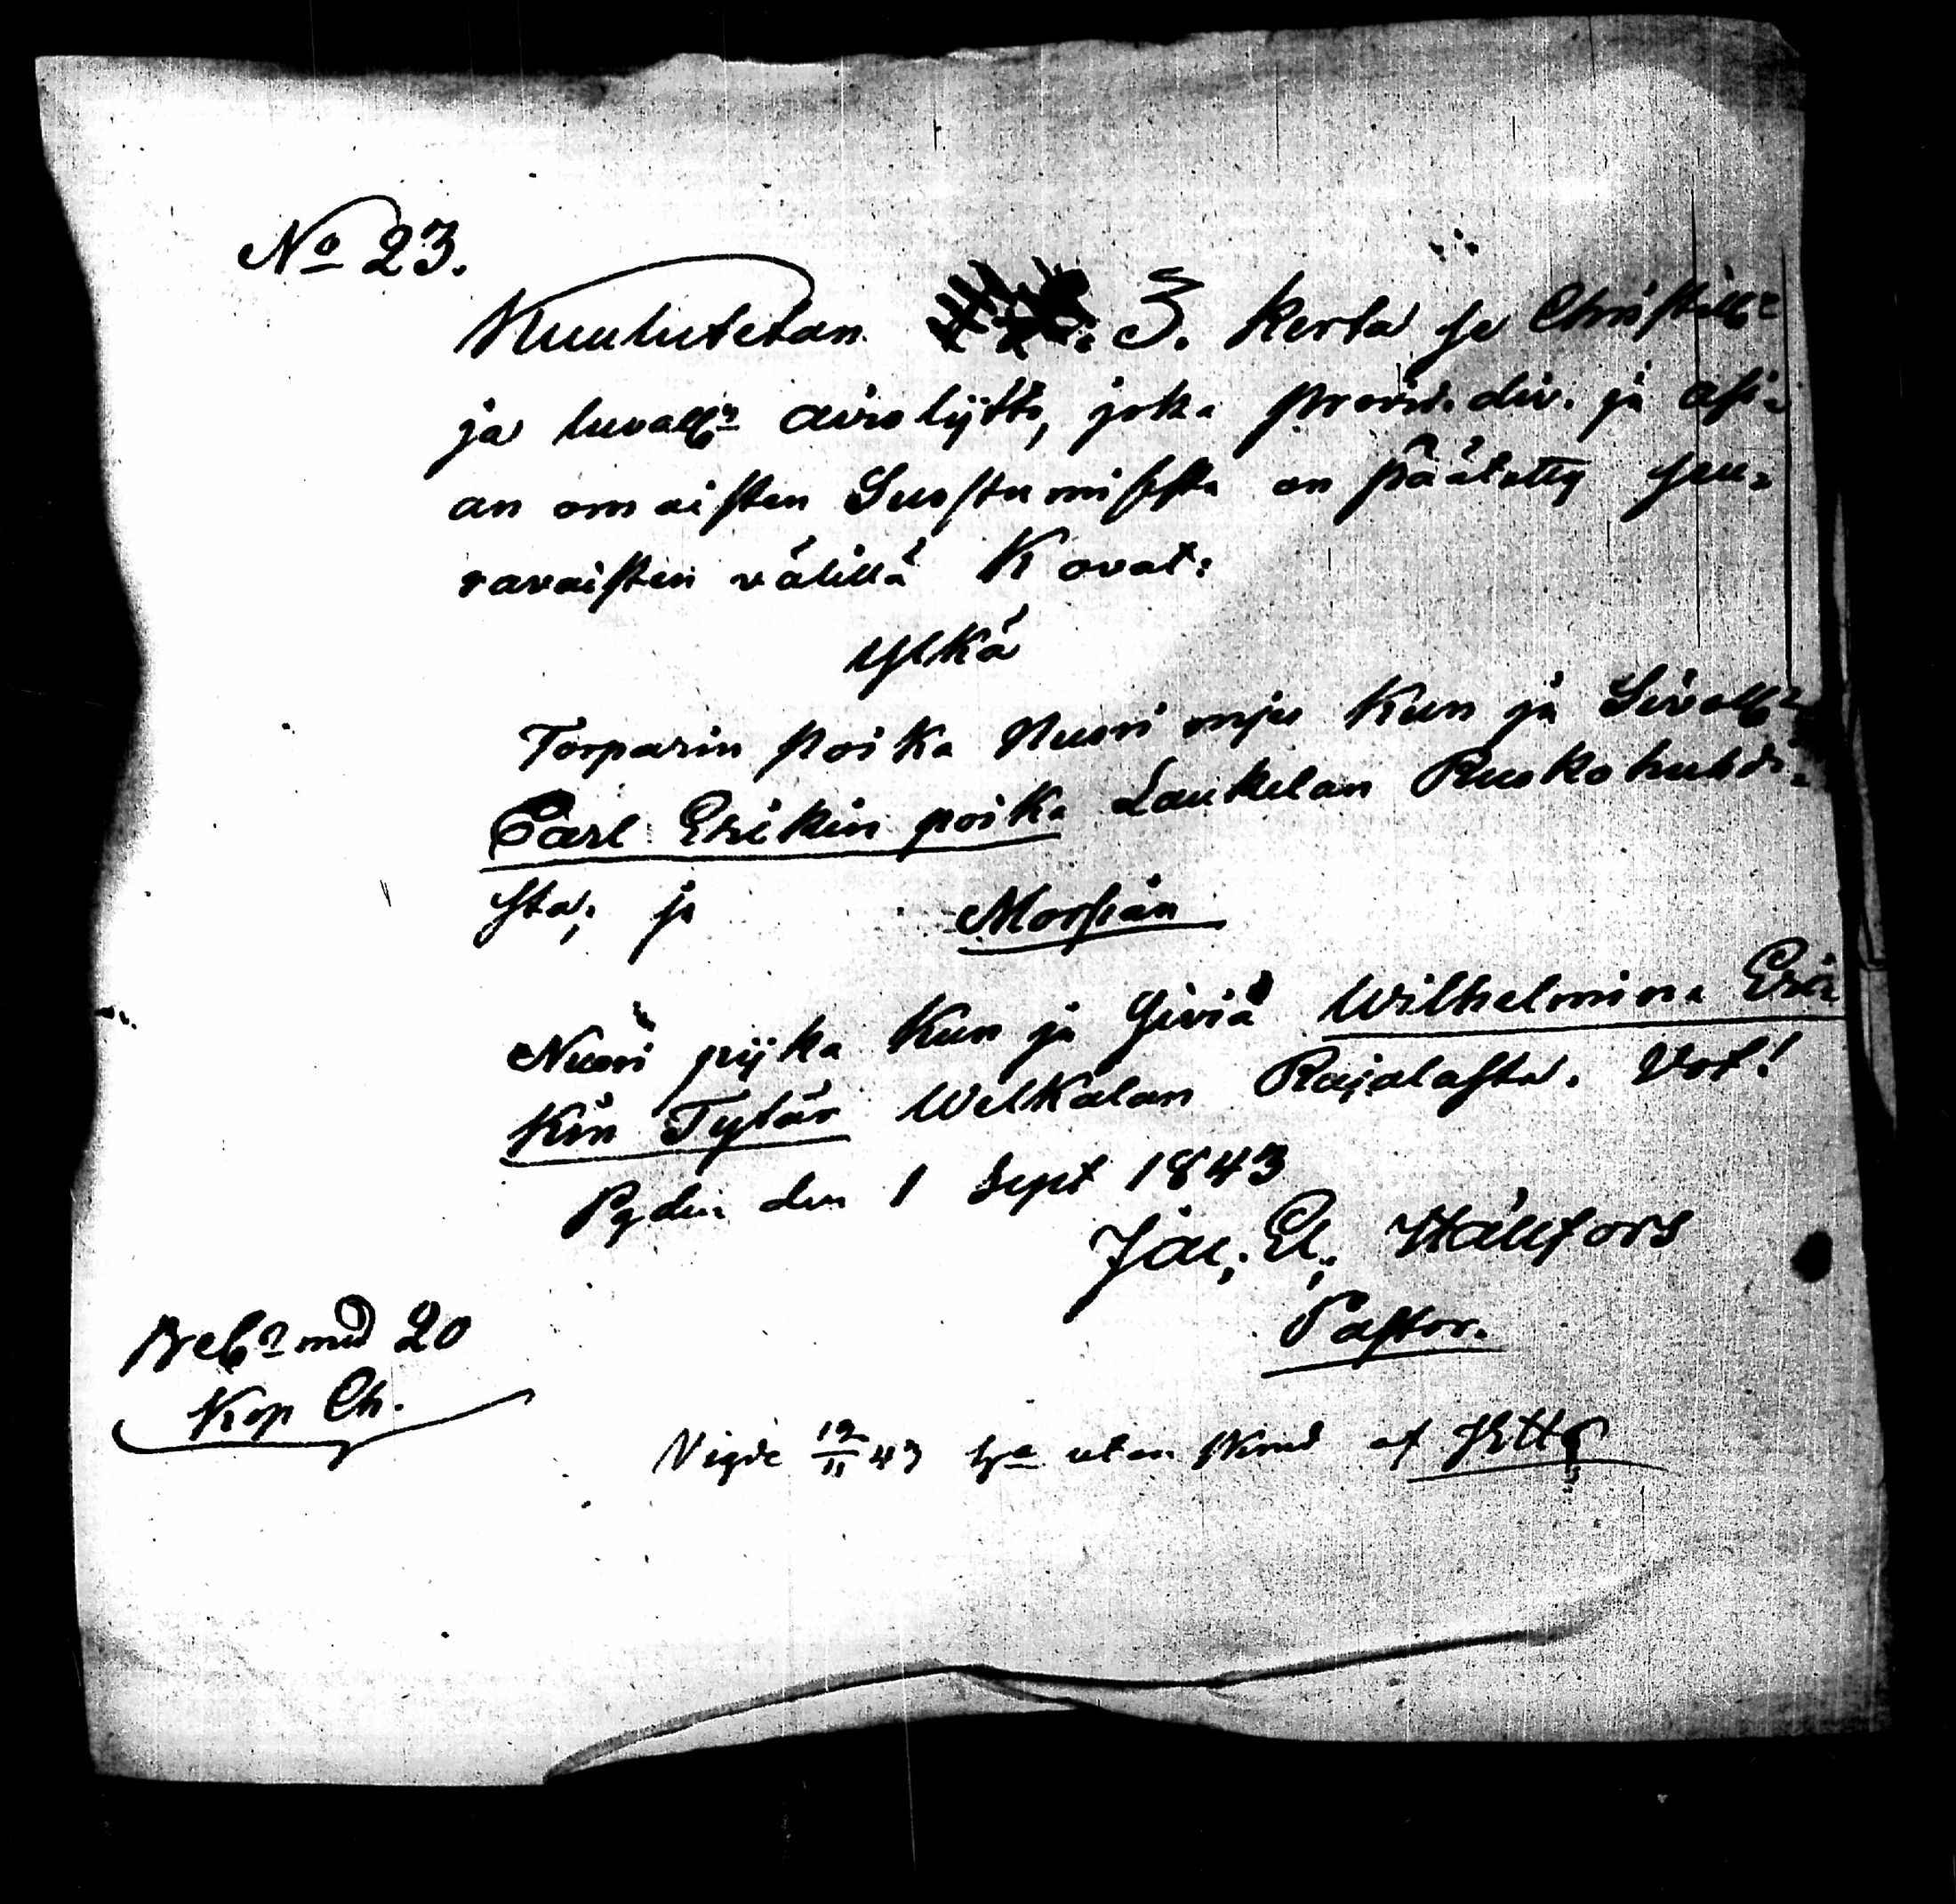 No 23.
Kuulutetan 3. kerta se Christill:n
ja luvall:n avioliitto, joka provid. div. ja asi=
an omaisten Suostumisesta on päätetty seu=
ravaisten välillä K ovat:
Ylkä
Torparin poika Nuori mjes Kun ja Siveell:n
Carl Erikin poika Laukelan Ruskohuhdi=
sta; ja Morsian
Nuori pijka Kun ja Siviä Wilhelmina Eri=
kin Tytär Welkalan Rajalasta. Vot!
Pyden den 1 Sept 1843
Jac. El. Hällfors
Pastor.
med 20
Kop Ch.
Vigde 12/11 43 utan af